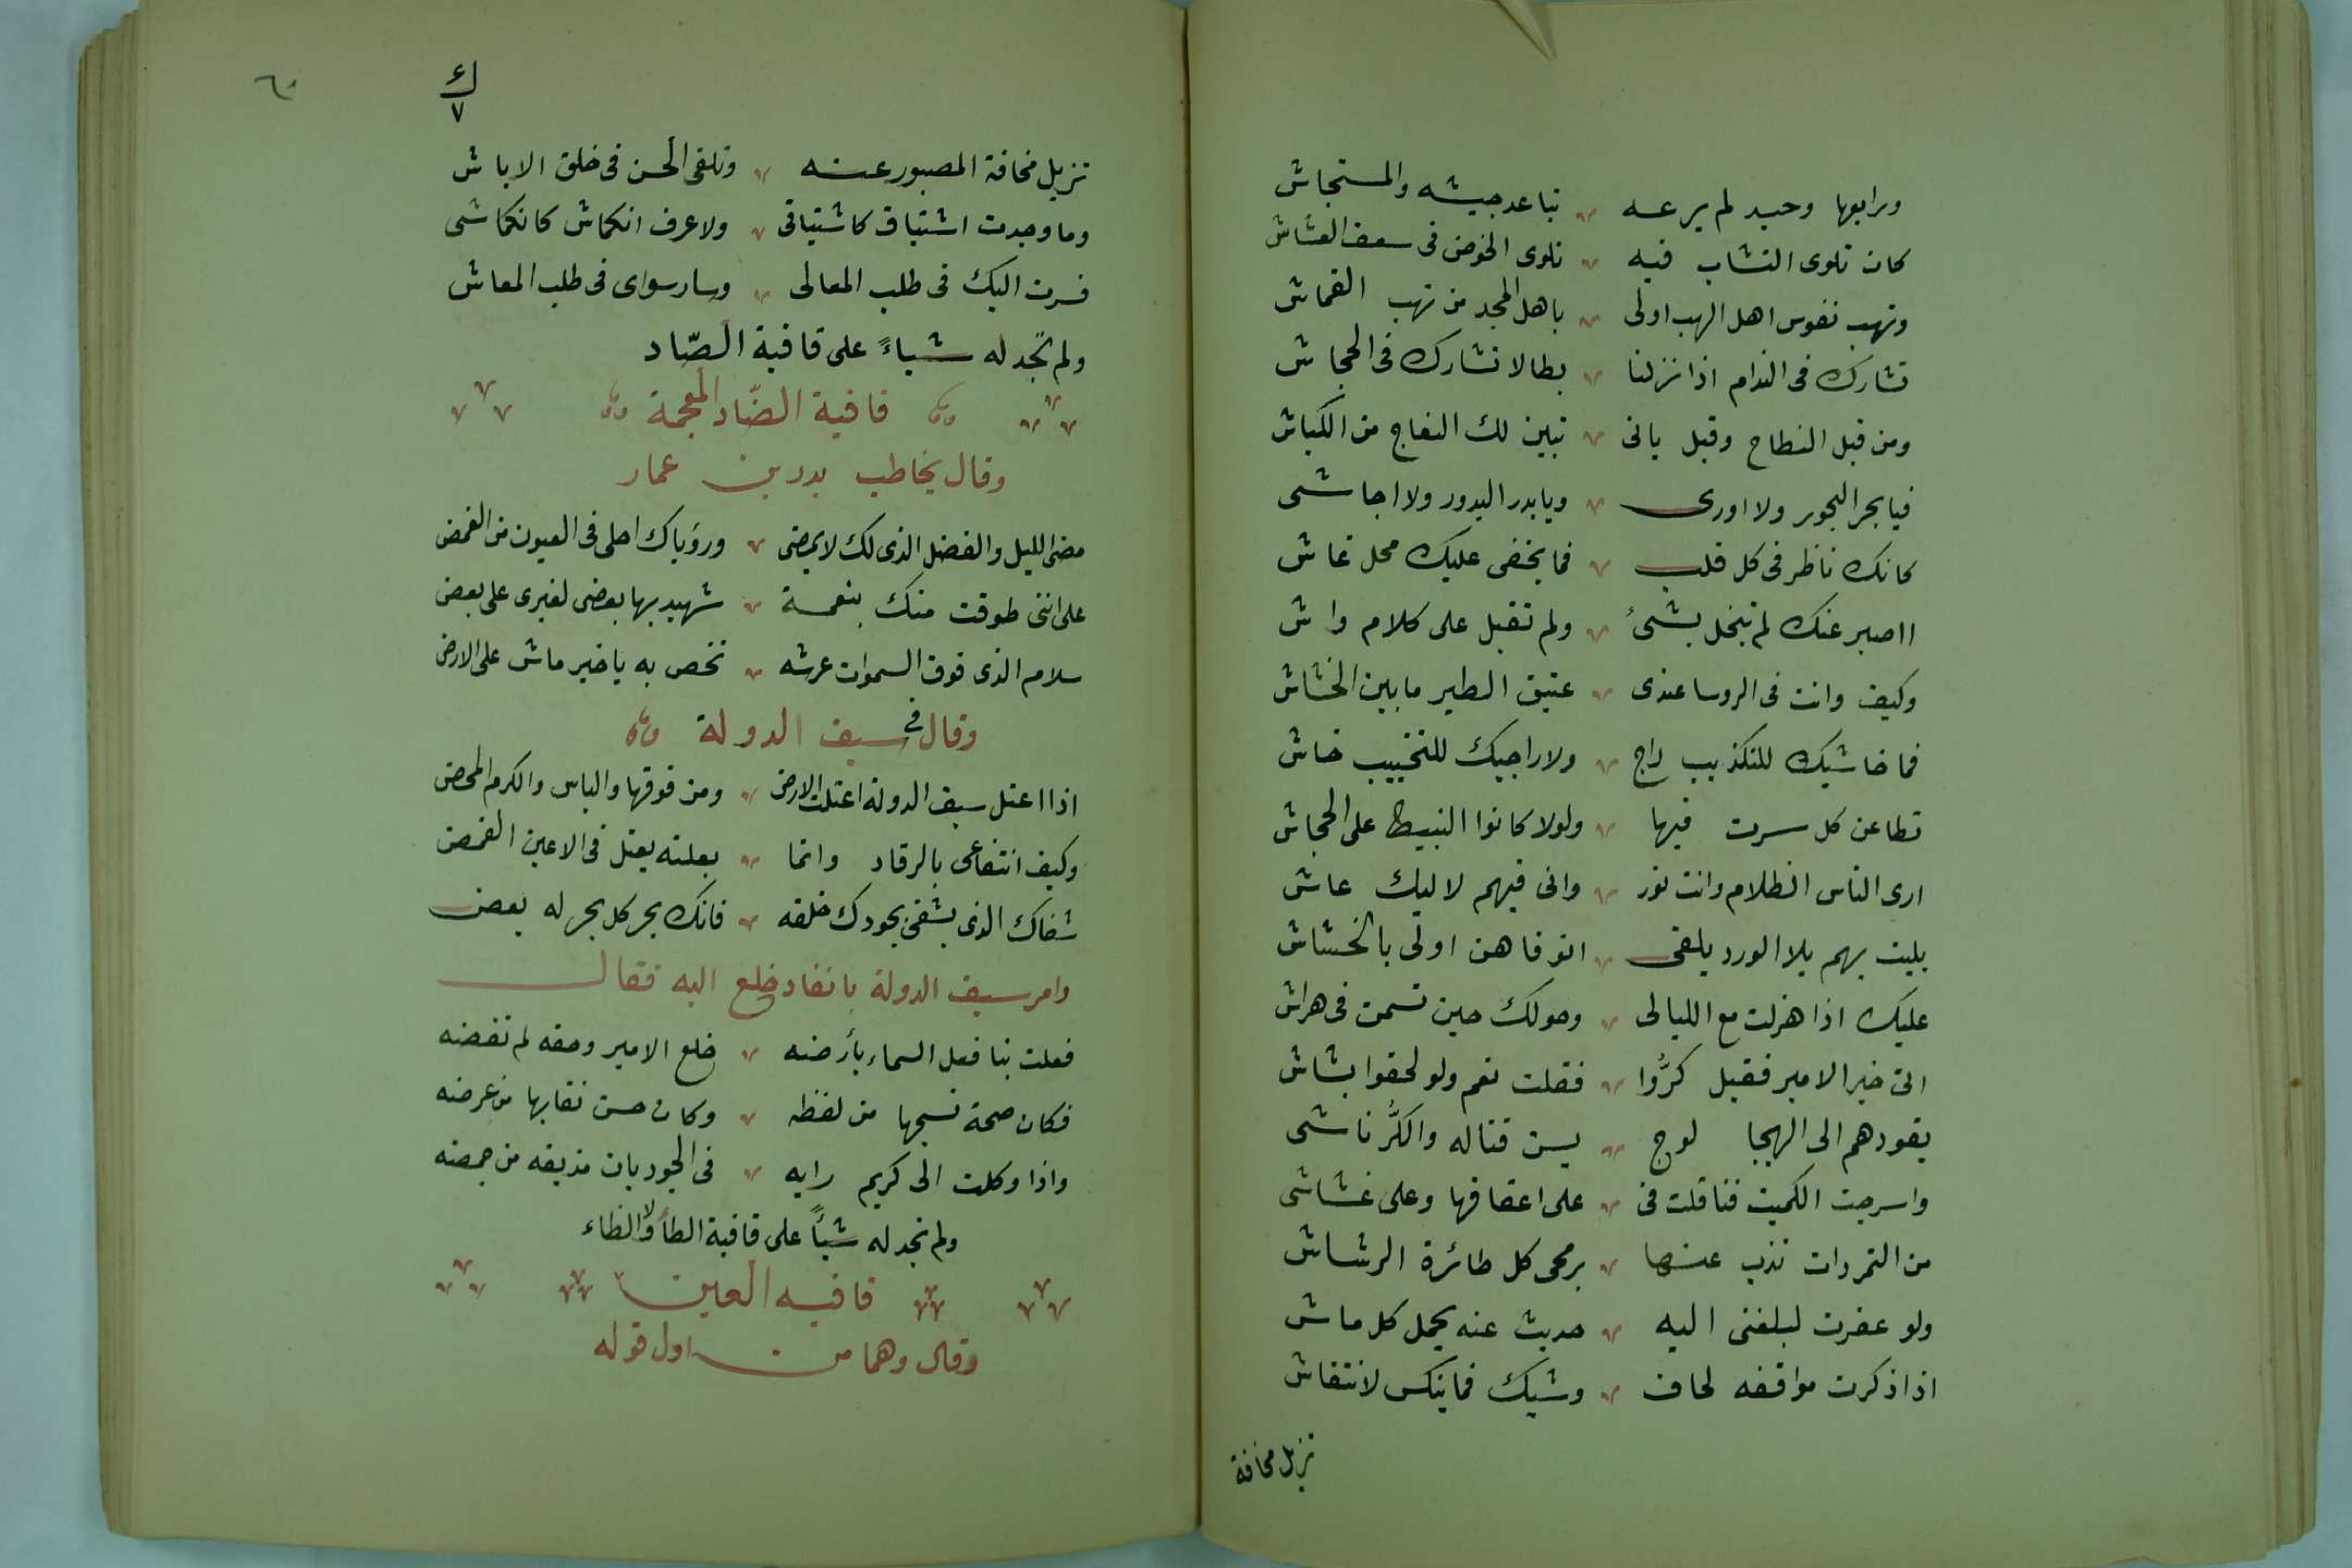 ورابعها وحيد لم يرعه تباعد جيشه والمستجاش
كان تلوى النشاب فيه تلوى الخوص فى سعف العشاش
ونهب نفوس اهل النهب اولى باهل المجد من نهب القماش
تشارك فى الندام اذا نزلنا بطالا تشارك فى الجحاش
ومن قبل النطاح وقبل يانى تبين لك النعاج من الكباش
فيا بحر البحور ولا اورى ويا بدر البدور ولا احاشى
كانك ناظر فى كل قلب فما يخفى عليك محل غاش
ااصبر عنك لم تبخل بشئ ولم تقبل على كلام واش
وكيف وانت فى الروسا عندى عتيق الطير ما بين الخشاش
فما خاشيك للتكذيب راج ولا راجيك للتخييب خاش
تطاعن كل سرت فيها ولولا كانوا النبيط على الجحاش
ارى الناس الظلام وانت نور وانى فيهم لاليك عاش
بليت بهم بلا الورد يلقى انوفا هن اولى بالخشاش
عليك اذا هزلت مع الليالى وحولك حين تسمن فى هراش
اتى خبر الامير فقيل كرُّوا فقلت نعم ولو لحقوا بشاش
يقودهم الى الهيجا لوج يسن قتاله والكرُّ ناشى
واسرجت الكميت فناقلت فى على اعقافها وعلى غشاشى
من التمردات تذب عنها برمحى كل طائرة الرشاش
ولو عقرت لبلغنى اليه حديث عنه يحمل كل ماش
اذا ذكرت مواقفه لحاف وشيك فما ينكس لانتقاش
تزيل مخافة
٦٠
تزيل مخافة المصبور عنه وتلقى الحسن فى خلق الاباش
وما وجدت اشتياق كاشتياقى ولا عرف انكماش كانكماشى
فسرت اليك فى طلب المعالى وسار سواى فى طلب المعاش
ولم نجد له شياءً على قافية الصّاد
قافية الضّاد المعجمة
وقال يخاطب بدر بن عمار
مضى الليل والفضل الذى لك لا يمضى ورؤياك احلى فى العيون من الغمض
على اننى طوقت منك بنعمة شهيد بها بعضى لغيرى على بعض
سلام الذى فوق السموات عرشه تخص به يا خير ماش على الارض
وقال فى سيف الدولة
اذا اعتل سيف الدولة اعتلت الارض ومن فوقها والباس والكرم المحض
وكيف انتفاعى بالرقاد وانما بعلته يعتل فى الاعين الغمض
شفاك الذى يشفى بجودك خلقه فانك بحر كل بحر له بعض
وامر سيف الدولة بانفاد خلع اليه فقال
فعلت بنا فعل السماء بأرضه خلع الامير وحقه لم نقضه
فكان صحة نسجها من لفظه وكان حسن نقابها من عرضه
واذا وكلت الى كريم رايه فى الجود بان مذيقه من محضه
ولم نجد له شيأً على قافية الطأ ولا الظاء
قافيه العين
وقال وهما من اول قوله